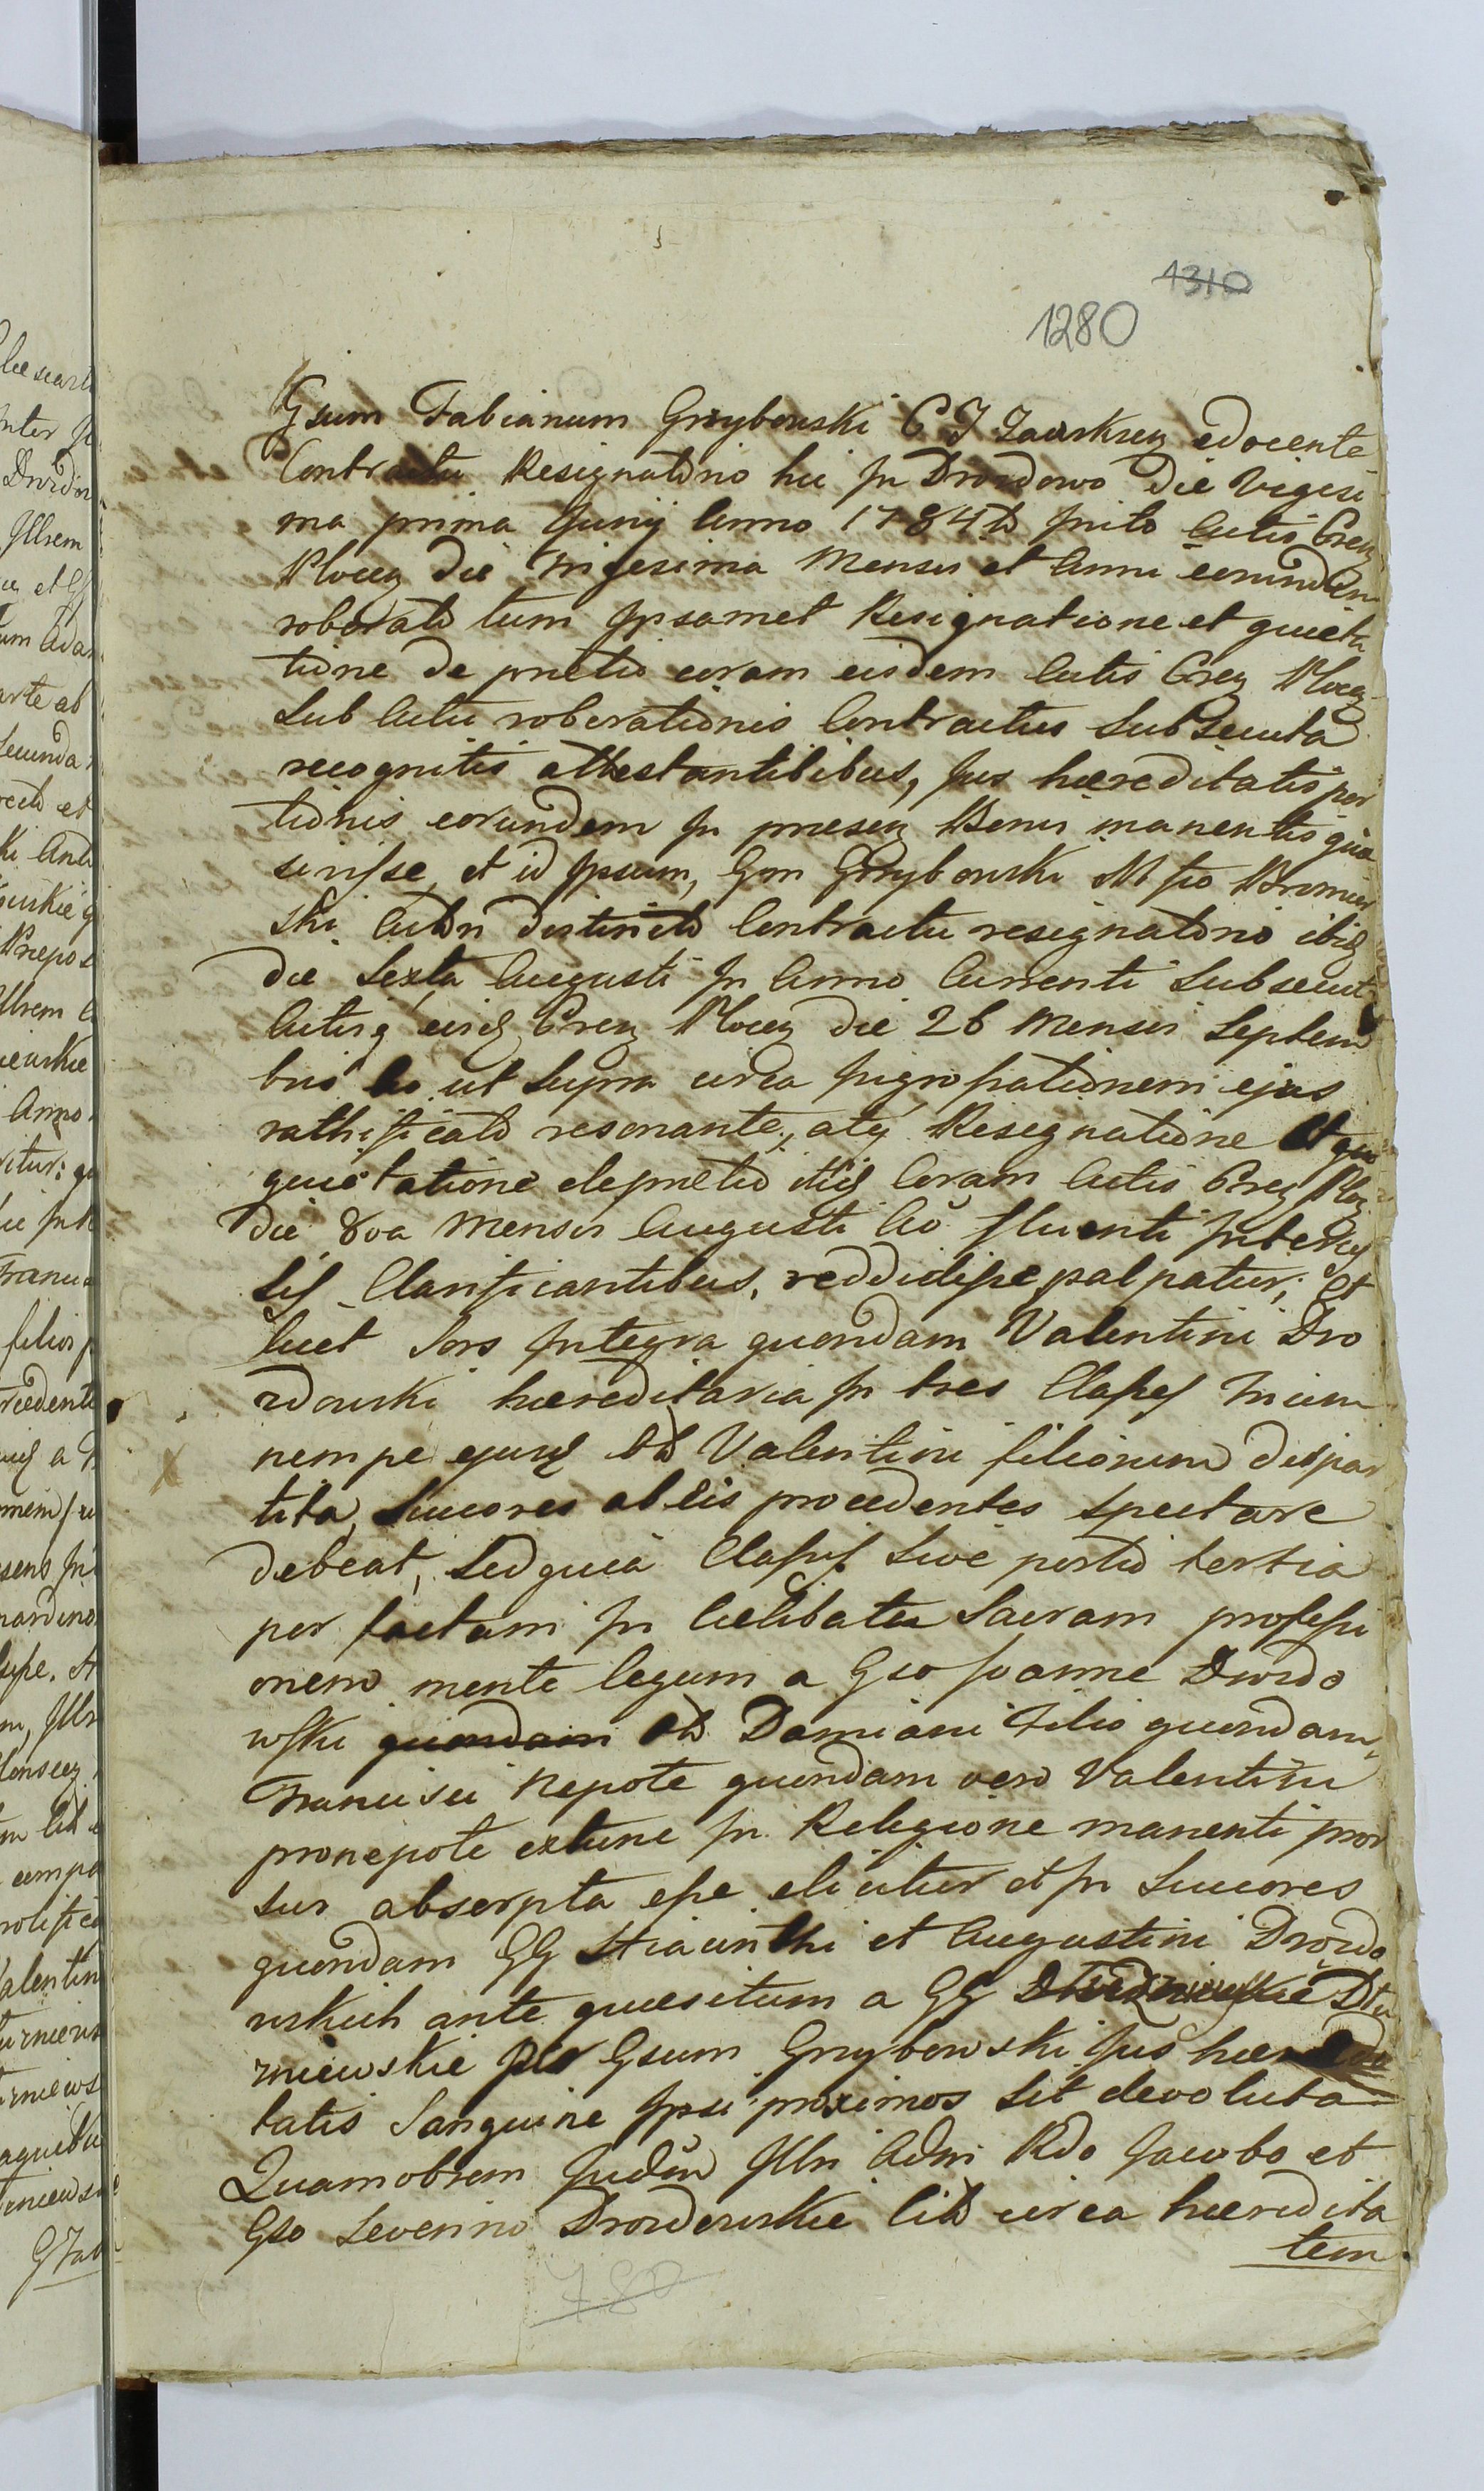 1310
1280
Gsum Fabianum Grzybowski C J Zawskrzen edocente
Contractu Resignatorio hic in Drozdowo die vigesi
ma prima Junij Anno 1784to inito Actis Cren
Plocen die trigesima Mensis et Anni eorundem
roborato tum ipsamet Resignatione et quieta
tione de pretio coram eisdem Actis Cren Plocen
sub Actu roborationis Contractus subsecuta
recognitis attestantibibus, jus hæreditatis por
tionis eorundem in præsen Bonis manentis qua
sivisse et id ipsum, Gm Grzybowski Mfico
ski distincto Contractu resignatorio ibid
die sexta Augusti in Anno currenti subsecut
Actisq eisd Cren Plocen die 26 Mensis Septem
bris Ao ut supra circa ejus
rathificato resonante, atq Resignatione et qui
quietatione de pretio itid Coram Actis Cren Ploc
die 8va Mensis Augusti Ao fluenti
sis Clarificantibus, reddidisse palpatur; et
licet Sors integra quondam Valentini Dro
zdowski hæreditaria in tres Classes trium
nempe ejusd olb Valentini filiorum dispar
tita, Succores ab eis procedentes spectare
debeat, sed quia Classis sive portio tertia
per factam in Cælibatu Sacram professi
onem mente legum a Gso Joanne Drozdo
wski quondam olb Damiani filio quondam
Francisci Nepote quondam vero Valentini
pronepote extunc in Religione manenti pror
sus absorpta esse elicitur et in Succores
quondam GG Hiacinthi et Augustini Drozdo
wskich ante quæsitum a GG Dtu
rniewskie per Gsum Grzybowski jus hæredi
tatis Sanguine ipsi proximos sit devoluta
Quamobrem Judm Illri Admi Rdo Jacobo et
Gso Severino Drozdowskie citb circa hæredita
tem
780